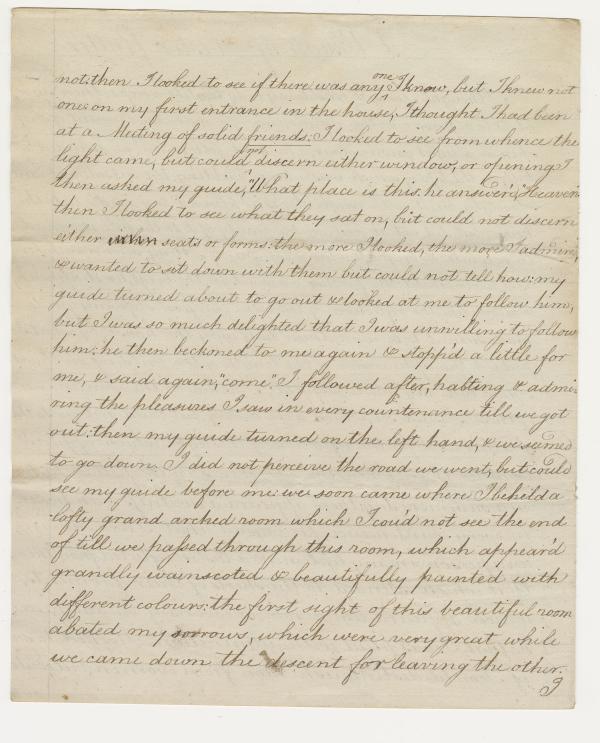 not: then I looked to see if there was any one I know, but I knew not
one: on my first entrance in the house, I thought I had been
at a Meeting of solid friends: I looked to see from whence the
light came, but could not discern either window, or opening I
then asked my guide, "What place is this, he answer'd, "Heaven
then I looked to see what they sat on, but could not discern
either seats or forms: the more I looked, the more I admir'd,
& wanted to set down with them but could not tell how: my
guide turned about to go out & looked at me to follow him,
but I was so much delighted that I was unwilling to follow
him: he then beckoned to me again & stopp'd a little for
me, & said again, "come". I followed after, halting & admi-
ring the pleasures I saw in every countenance till we got
out: then my guide turned on the left hand, & we seemed
to go down. I did not perceive the road we went, but could
see my guide before me: we soon came where I beheld a
lofty grand arched room which I cou'd not see the end
of till we passed through this room, which appear'd
grandly wainscoted & beautifully painted with
different colours: the first sight of this beautiful room
abated my sorrows, which were very great while
we came down the descent for leaving the other.
I